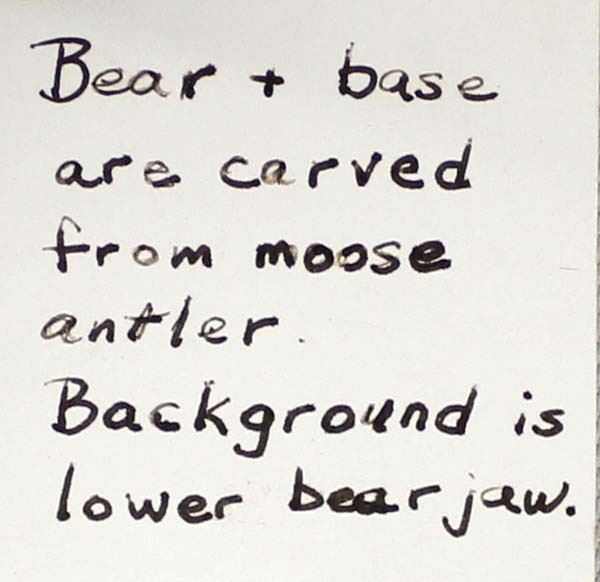 Bear + base
are carved
from moose
antler.
Background is
lower bear jaw.